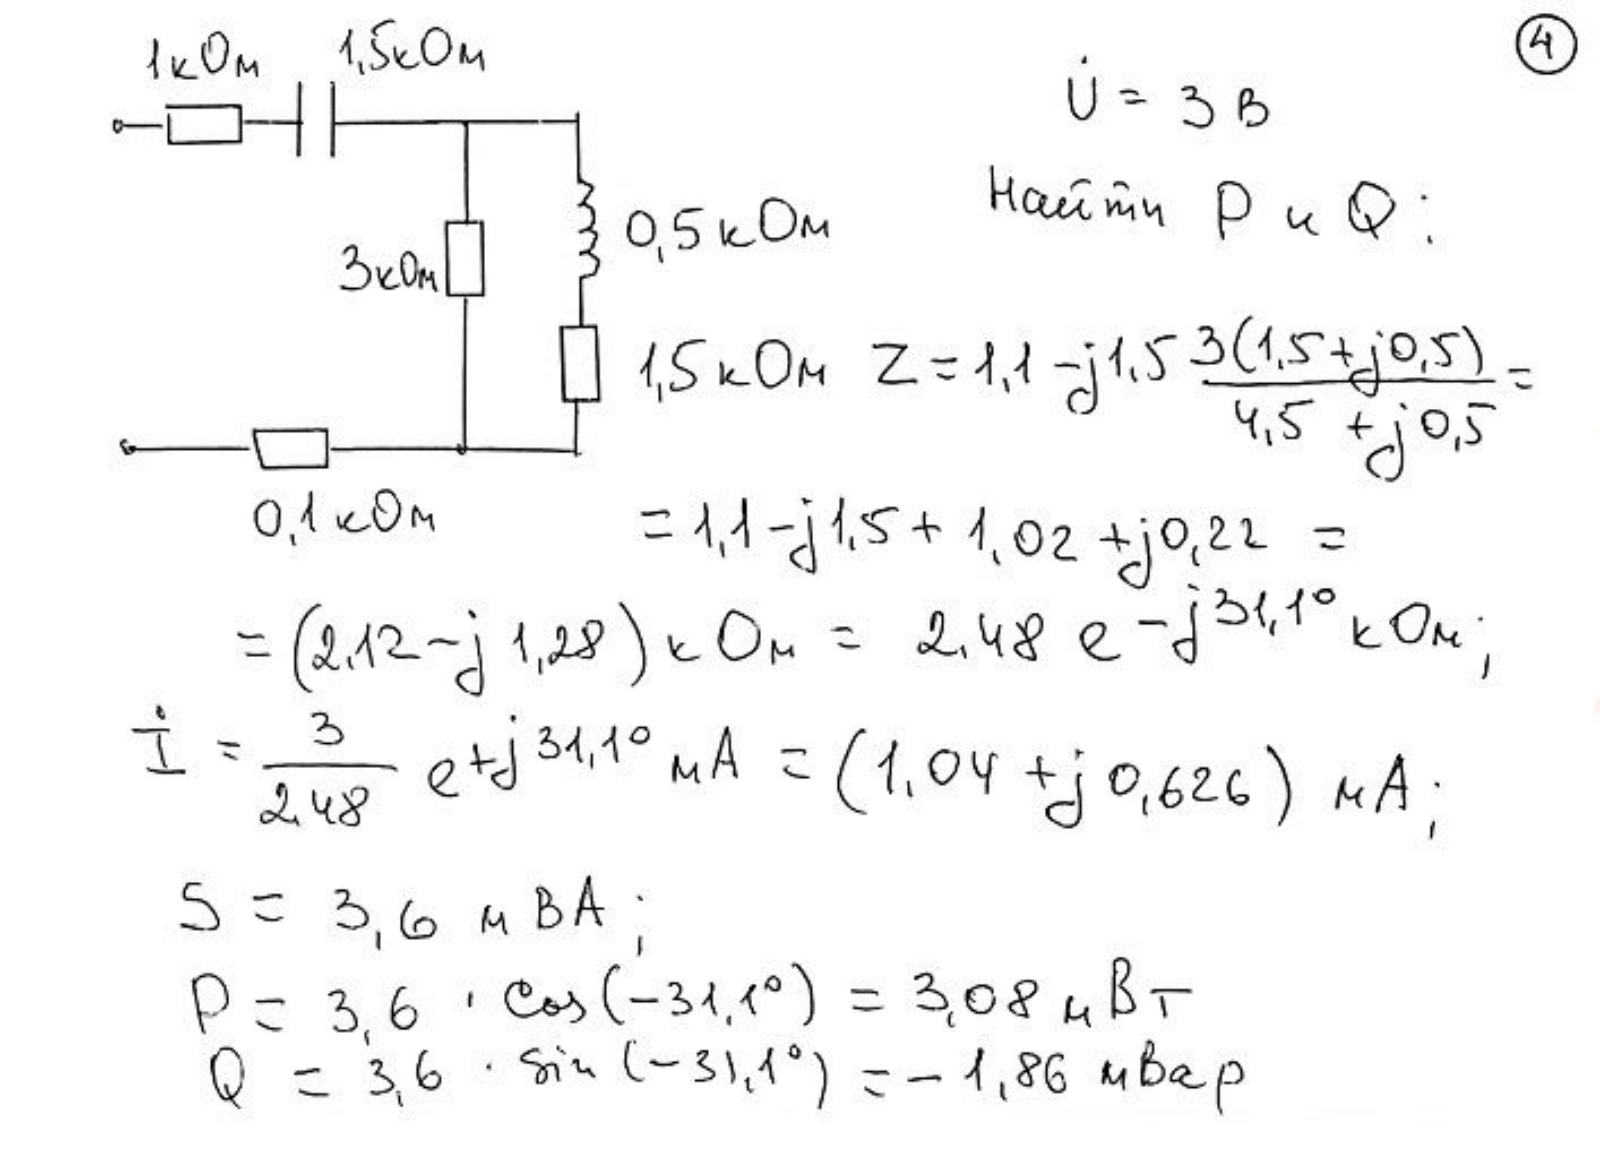 4
1кОм 1,5кОм
U̇ = 3 В
Найти P и Q:
3кОм
0,5 кОм
1,5 кОм
0,1 кОм
Z = 1,1 - j1,5 3(1,5+j0,5)/4,5 + j0,5 =
= 1,1 - j1,5 + 1,02 + j0,22 =
= (2,12 - j 1,28) кОм = 2,48 e^-j31,1° кОм;
İ = 3/2,48 e^+j31,1° мА = (1,04 + j0,626) мА;
S = 3,6 мВА;
P = 3,6 · cos(-31,1°) = 3,08 мВт
Q = 3,6 · sin(-31,1°) = -1,86 мВар